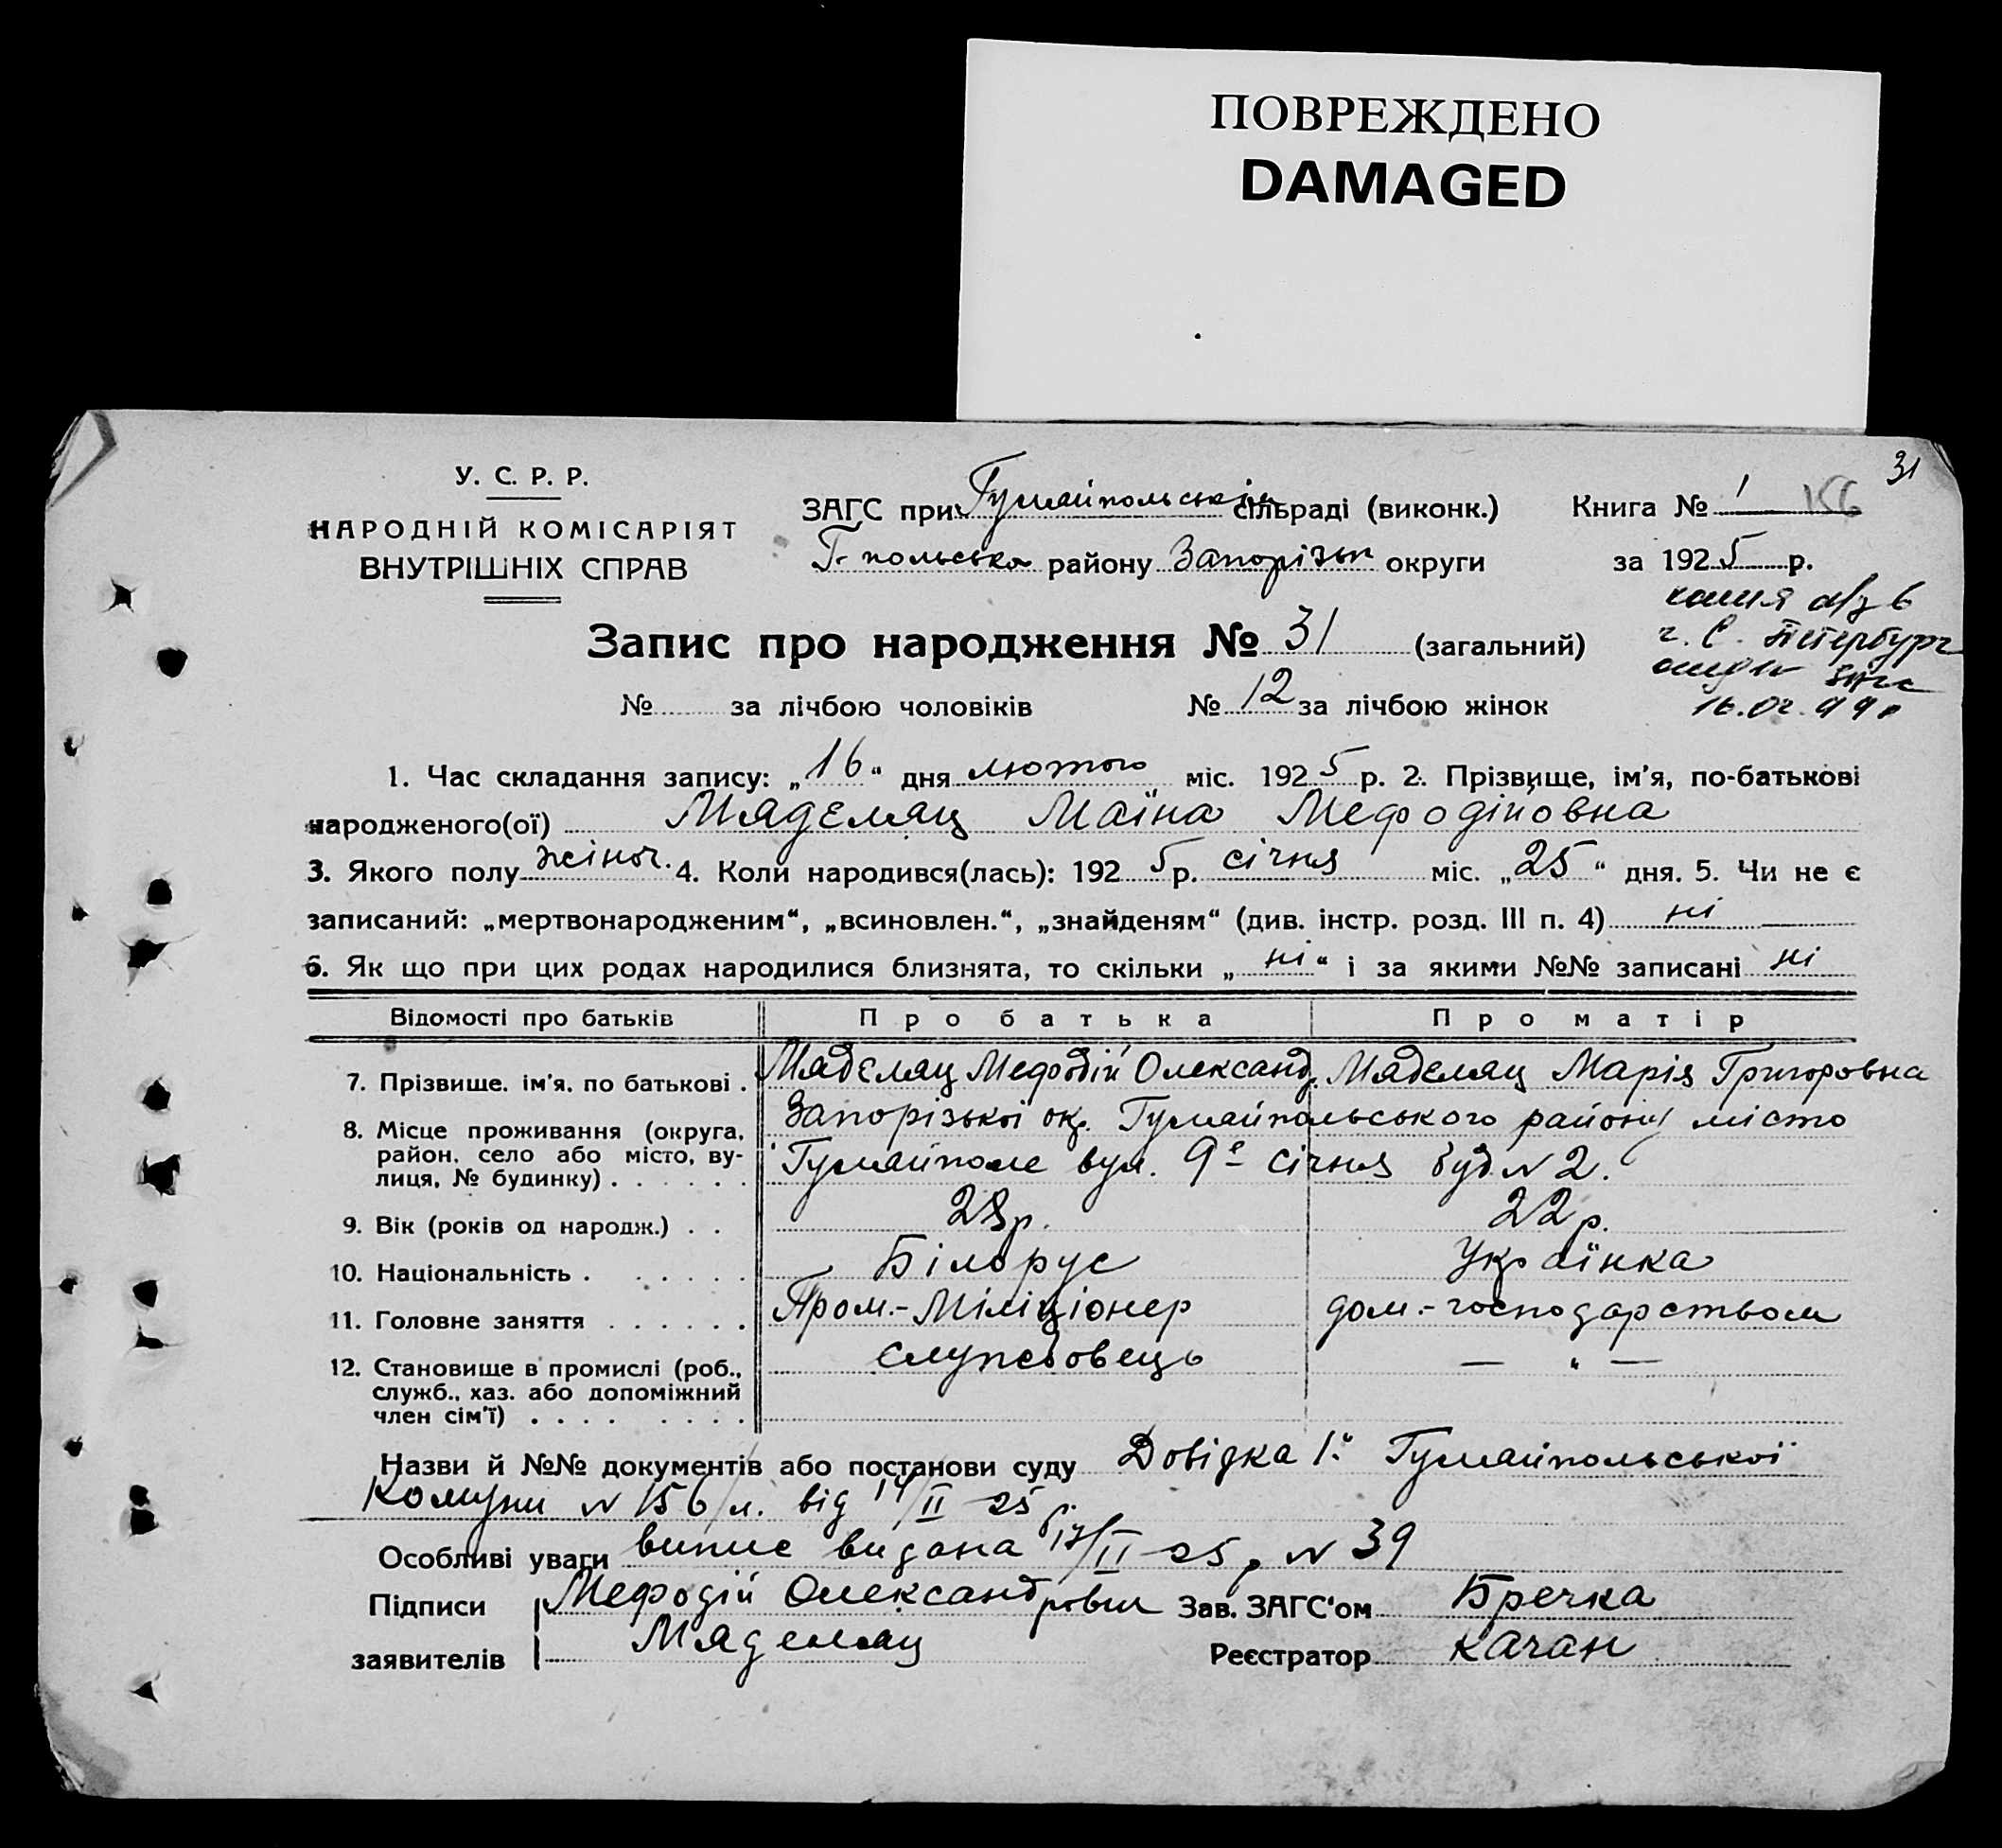 ПОВРЕЖДЕНО
DAMAGED
31
У. С. Р. Р.
НАРОДНІЙ КОМІСАРІЯТ
ВНУТРІШНІХ СПРАВ
ЗАГС при Гуляйпольськім сільраді (виконк.)
Г-польська району Запорізьк округи
Книга № 1
за 1925 р.
копия а/з в
г. С. Петербург
16.02.99
Запис про народження № 31 (загальний)
№ за лічбою чоловіків № 12 за лічбою жінок
1. Час складання запису: „16“ дня лютого міс. 1925 р. 2. Прізвище, ім’я, по-батькові
народженого(ої) Мядєляц Маїна Мефодіївна
3. Якого полу жіноч. 4. Коли народився(лась): 1925 р. січня міс. „25“ дня. 5. Чи не є
записаний: „мертвонародженим“, „всиновлен.“, „знайденям“ (див. інстр. розд. III п. 4) ні
6. Як що при цих родах народилися близнята, то скільки „ні“ і за якими №№ записані ні
Відомості про батьків Про батька Про матір
7. Прізвище. ім’я. по батькові . Мядєляц Мефодій Олександ. Мядєляц Марія Григоровна
8. Місце проживання (округа, район, село або місто, вулиця, № будинку) . . . . . . Запорізької окр. Гуляйпольського району місто
Гуляйполе вул. 9е січня буд. N 2.
9. Вік (років од народж.) . . 28 р. 22 р.
10. Національність . . . . . . Білорус Українка
11. Головне заняття . . . . . . Пром.-Міліціонер дом.-господарством
12. Становище в промислі (роб., служб., хаз. або допоміжний член сім’ї) . . . . . . . . Службовець — " —
Назви й №№ документів або постанови суду Довідка 1ої Гуляйпольської
Комуни N 156/л. від 14/II 25 р.
Особливі уваги випис видана 17/II-25 р. N 39
Підписи Мефодій Олександрович Зав. ЗАГС‘ом Бречка
заявителів Мяделяц Реєстратор Качан